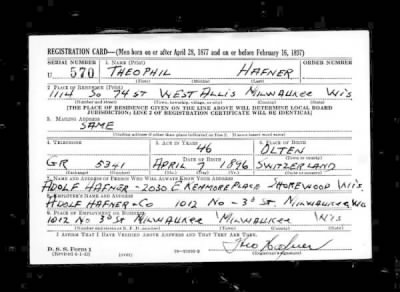 REGISTRATION CARD—(Men born on or after April 28, 1877 and on or before February 16, 1897)
SERIAL NUMBER 1. NAME (Print) ORDER NUMBER
U 570 THEOPHIL HAFNER
(First) (Middle) (Last)
2. PLACE OF RESIDENCE (Print)
1114 SO 74 ST WEST ALLIS MILWAUKEE WIS
(Number and street) (Town, township, village, or city) (County) (State)
[THE PLACE OF RESIDENCE GIVEN ON THE LINE ABOVE WILL DETERMINE LOCAL BOARD
JURISDICTION; LINE 2 OF REGISTRATION CERTIFICATE WILL BE IDENTICAL]
3. MAILING ADDRESS
SAME
[Mailing address if other than place indicated on line 2. If same insert word same]
4. TELEPHONE 5. AGE IN YEARS 6. PLACE OF BIRTH
46 OLTEN
DATE OF BIRTH (Town or county)
GR 5341 APRIL 7 1896 SWITZERLAND
(Exchange) (Number) (Mo.) (Day) (Yr.) (State or country)
7. NAME AND ADDRESS OF PERSON WHO WILL ALWAYS KNOW YOUR ADDRESS
ADOLF HAFNER - 2030 E KENMORE PLACE SHOREWOOD WIS.
8. EMPLOYER'S NAME AND ADDRESS
ADOLF HAFNER + CO 1012 NO - 3D ST, MILWAUKEE, WIS
9. PLACE OF EMPLOYMENT OR BUSINESS
1012 NO 3D ST MILWAUKEE MILWAUKEE WIS
(Number and street or R. F. D. number) (Town) (County) (State)
I AFFIRM THAT I HAVE VERIFIED ABOVE ANSWERS AND THAT THEY ARE TRUE.
D. S. S. Form 1 Theo Hafner
(Revised 4-1-42) (over) (Registrant's signature)